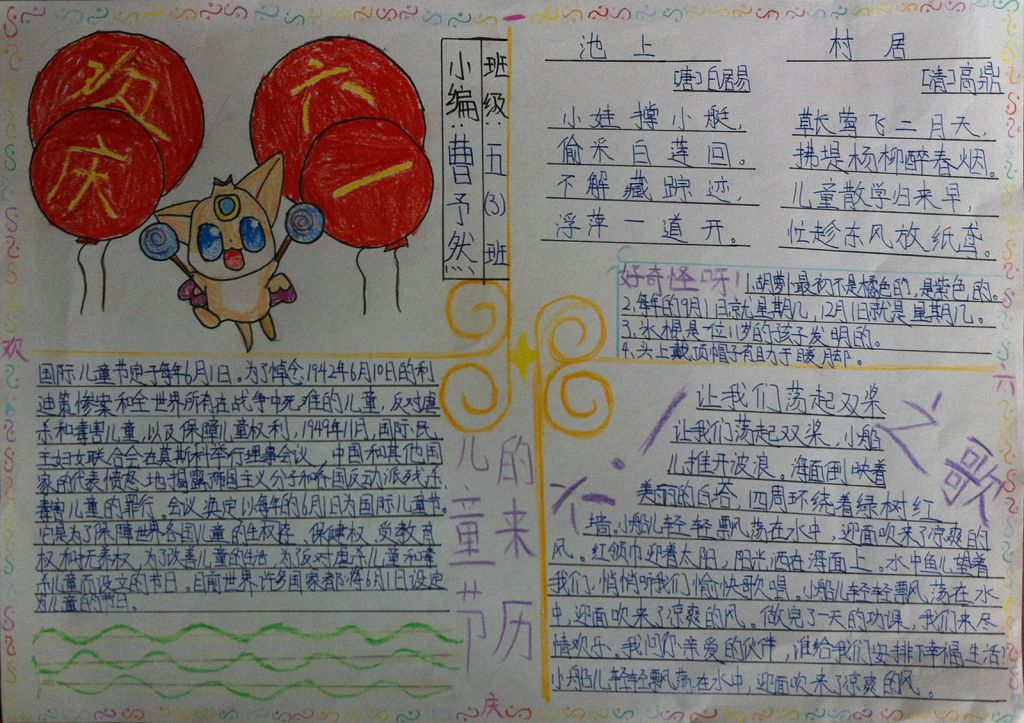 欢庆
六一
班级 五(3)班
小编:曹予然
池上
[唐]白居易
小娃撑小艇,
偷采白莲回。
不解藏踪迹,
浮萍一道开。
村居
[清]高鼎
草长莺飞二月天,
拂堤杨柳醉春烟。
儿童散学归来早,
忙趁东风放纸鸢。
好奇怪呀!1.胡萝卜最初不是橘色的,是紫色的。
2.每年的9月1日就是星期几,12月1日就是星期几。
3.冰棍是一位11岁的孩子发明的。
4.头上戴顶帽子有助于暖脚。
国际儿童节定于每年6月1日。为了悼念1942年6月10日的利
迪策惨案和全世界所有在战争中死难的儿童,反对虐
杀和毒害儿童,以及保障儿童权利,1949年11月,国际民
主妇女联合会在莫斯科举行理事会议,中国和其他国
家的代表愤怒地揭露了帝国主义分子和各国反动派残杀、
毒害儿童的罪行。会议决定以每年的6月1日为国际儿童节。
它是为了保障世界各国儿童的生权存、保健权、受教育
权和抚养权,为了改善儿童的生活,为了反对虐杀儿童和毒
杀儿童而设立的节日。目前世界许多国家都将6月1日设定
为儿童的节日。
儿童节
的来历
六·一之歌
让我们荡起双桨
让我们荡起双桨,小船
儿推开波浪。海面倒映着
美丽的白塔,四周环绕着绿树红
墙。小船儿轻轻飘荡在水中,迎面吹来了凉爽的
风。红领巾迎着太阳,阳光洒在海面上。水中鱼儿望着
我们,悄悄听我们愉快歌唱。小船儿轻轻飘荡在水
中,迎面吹来了凉爽的风。做完了一天的功课,我们来尽
情欢乐。我问你亲爱的伙伴,谁给我们安排下幸福生活?
小船儿轻轻飘荡在水中,迎面吹来了凉爽的风。
欢
庆
六
一